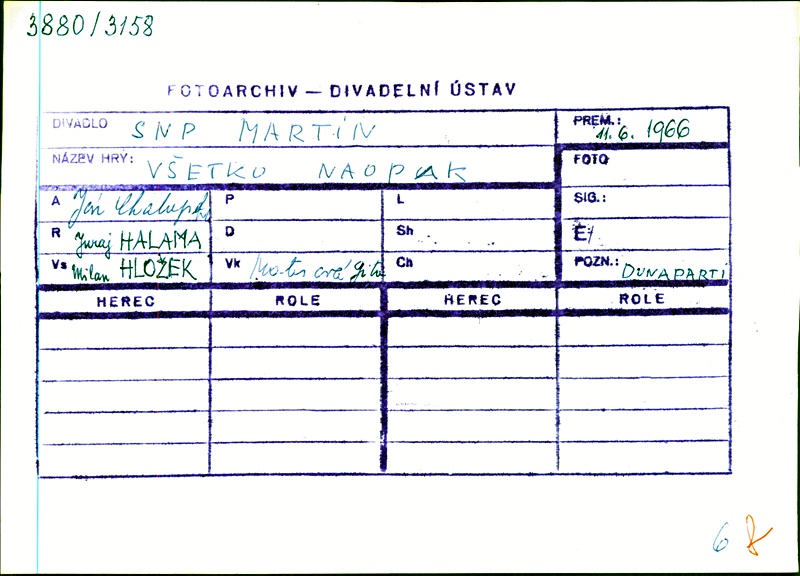 3880/3158
FOTOARCHIV — DIVADELNÍ ÚSTAV
DIVADLO SNP MARTIN
PREM.: 11. 6. 1966
NÁZEV HRY: VŠETKO NAOPAK
FOTO
A Ján Chalupka P L SIG.:
R Juraj HALAMA D Sh
Vs Milan HLOŽEK Vk Ch POZN.: DUNAPARTI
HEREC ROLE HEREC ROLE
6